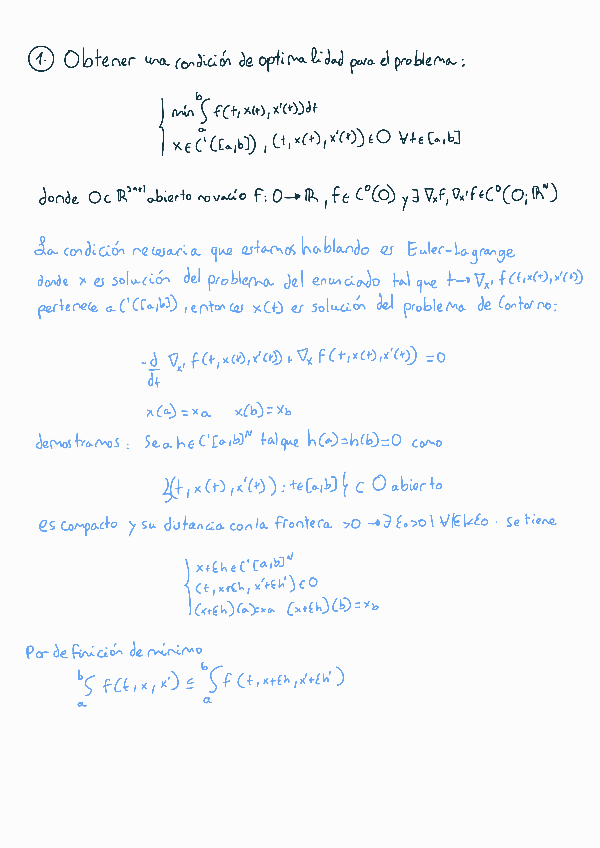 1. Obtener una condición de optimalidad para el problema:
min ∫_a^b f(t, x(t), x'(t))dt
x ∈ C¹([a,b]), (t, x(t), x'(t)) ∈ O ∀t ∈ [a,b]
donde O ⊂ ℝ²ᴺ⁺¹ abierto no vacío f: O → ℝ, f ∈ C⁰(O) y ∃ ∇ₓf, ∇ₓ'f ∈ C⁰(O; ℝᴺ)
La condición necesaria que estamos hablando es Euler-Lagrange
donde x es solución del problema del enunciado tal que t → ∇ₓ' f(t, x(t), x'(t))
pertenece a C¹([a,b]), entonces x(t) es solución del problema de contorno:
-d/dt ∇ₓ' f(t, x(t), x'(t)) + ∇ₓ f(t, x(t), x'(t)) = 0
x(a) = xa x(b) = xb
demostramos: Sea h ∈ C¹[a,b]ᴺ tal que h(a)=h(b)=0 como
{(t, x(t), x'(t)) : t ∈ [a,b]} ⊂ O abierto
es compacto y su distancia con la frontera >0 → ∃ ε₀>0 | ∀|ε|<ε₀. se tiene
x+εh ∈ C¹[a,b]ᴺ
(t, x+εh, x'+εh') ∈ O
(x+εh)(a)=xa (x+εh)(b)=xb
Por definición de mínimo
∫_a^b f(t, x, x') ≤ ∫_a^b f(t, x+εh, x'+εh')